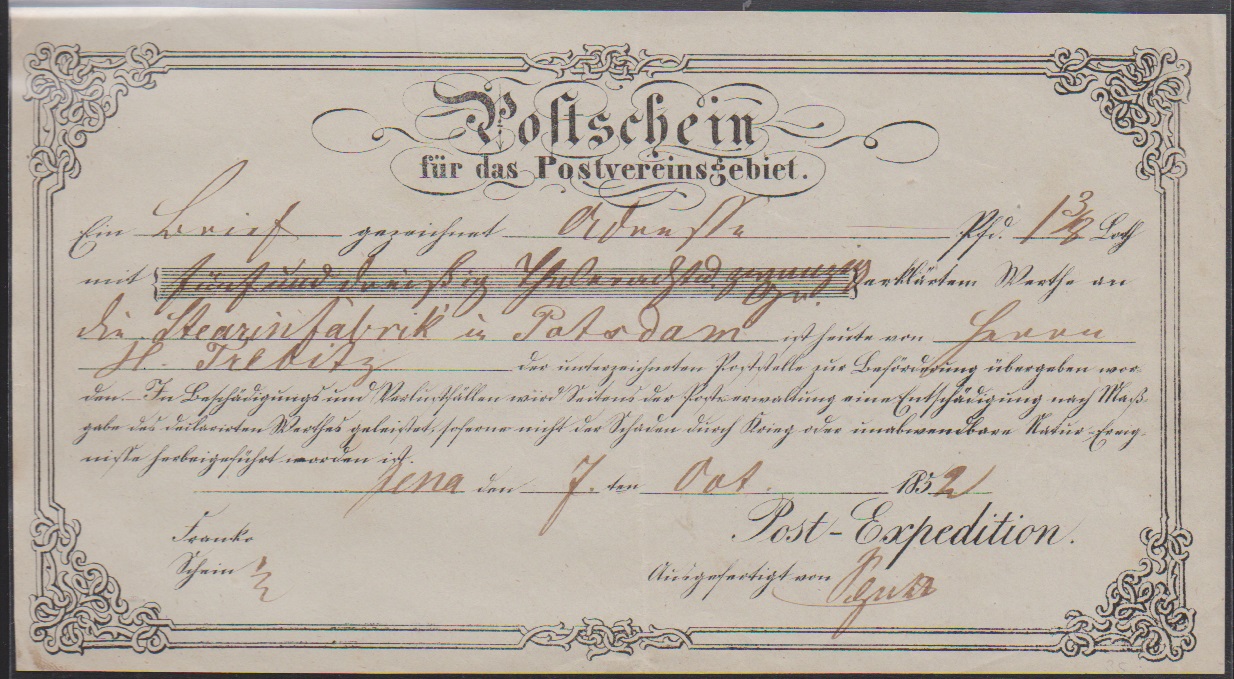 Postschein
für das Postvereinsgebiet.
Ein Brief gezeichnet Adresse Pfd. 1 3/8 Loth
mit fünf und dreißig Thaler erklärtem Werthe an
die Stearinfabrik in Potsdam ist heute von Herrn
H. Trebitz der unterzeichneten Poststelle zur Beförderung übergeben wor-
den. In Beschädigungs und Verlustfällen wird Seitens der Postverwaltung eine Entschädigung nach Maß-
gabe des declarirten Werthes geleistet, soferne nicht der Schaden durch Krieg oder unabwendbare Natur-Ereig-
nisse herbeigeführt worden ist.
Jena den 7. ten Oct. 1852
Post-Expedition.
Franko
Schein 1/2
Ausgefertigt von